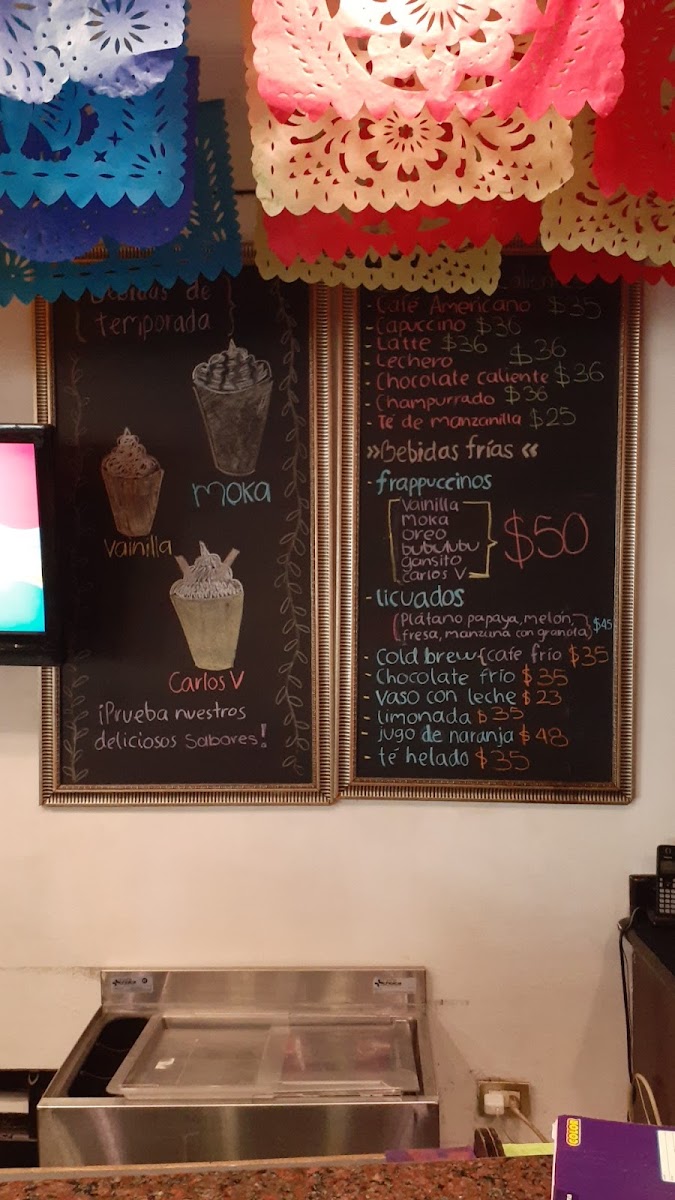 Bebidas de
temporada
moka
vainilla
Carlos V
¡Prueba nuestros
deliciosos sabores!
- Café Americano $35
- Capuccino $36
- Latte $36
- Lechero $36
- Chocolate caliente $36
- Champurrado $36
- Té de manzanilla $25
»Bebidas frías«
- frappuccinos
vainilla
moka
oreo
bubulubu
gansito
carlos V
$50
- licuados
(Plátano papaya, melón,
fresa, manzana con granola) $45
- Cold brew { cafe frío $35
- Chocolate frío $35
- Vaso con leche $23
- limonada $35
- jugo de naranja $48
- té helado $35
COLOR